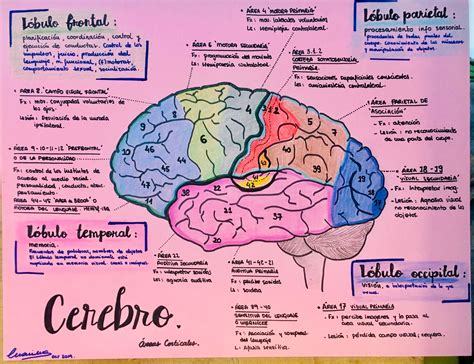 Lóbulo frontal :
planificación, coordinación, control y
ejecución de conductas. Control de los
impulsos, juicio, producción del
lenguaje, m. funcional, (E)motoras,
comportamiento sexual, socialización.
• ÁREA 4 "MOTORA PRIMARIA"
Fx: mov. laterales voluntarios
Ls: Hemiplejia contralateral.
Lóbulo parietal :
procesamiento info sensorial.
• ÁREA 6 "MOTORA SECUNDARIA"
Fx: programación del movimiento
Ls: Hemiparesia contralateral.
• ÁREA 3.1.2
CORTEZA SOMATOSENSORIAL
PRIMARIA.
Fx: sensaciones superficiales conscientes.
Ls: anestesia contralateral.
• ÁREA 8 "CAMPO VISUAL FRONTAL"
Fx: mov. conjugados voluntarios de
los ojos.
Lesión: Desviación de la mirada
ipsilateral.
• ÁREA PARIETAL DE
"ASOCIACIÓN"
- Fx: atención
- Lesión: no reconocimiento
de una parte del cuerpo.
• ÁREA 9-10-11-12 "PREFRONTAL"
O DE LA PERSONALIDAD
Fx: control de los instintos, de
acuerdo al medio social.
Personalidad, conducta, afecto,
pensamiento.
ÁREA 44-45 "ÁREA DE BROCA" O
MOTORA DEL LENGUAJE
• ÁREA 18-19
"VISUAL SECUNDARIA"
Fx: Interpretar imag.
- Lesión: Agnosia visual
no reconocimiento de
los objetos.
9
8
6
4
10
46
45
44
11
47
38
22
21
20
37
39
19
18
17
41
42
Lóbulo temporal :
memoria.
Recuerdos de palabras, nombres de objetos.
El lóbulo temporal no dominante está
implicado en memoria visual, caras e imágenes.
• ÁREA 22
AUDITIVA SECUNDARIA
Fx: interpretar sonidos
Ls: agnosia auditiva
• ÁREA 41-42-21
AUDITIVA PRIMARIA
Fx: percibe sonidos
Ls: sordera
Lóbulo occipital :
VISIÓN, e interpretación de lo que
vemos.
Cerebro.
Áreas Corticales.
• ÁREA 39-40
SENSITIVA DEL LENGUAJE
O WERNICKE
Fx: Asociación y comprens.
del lenguaje
L: Afasia sensitiva.
ÁREA 17 VISUAL PRIMARIA
Fx: percibe imágenes y la pasa al
área visual secundaria.
L: ceguera